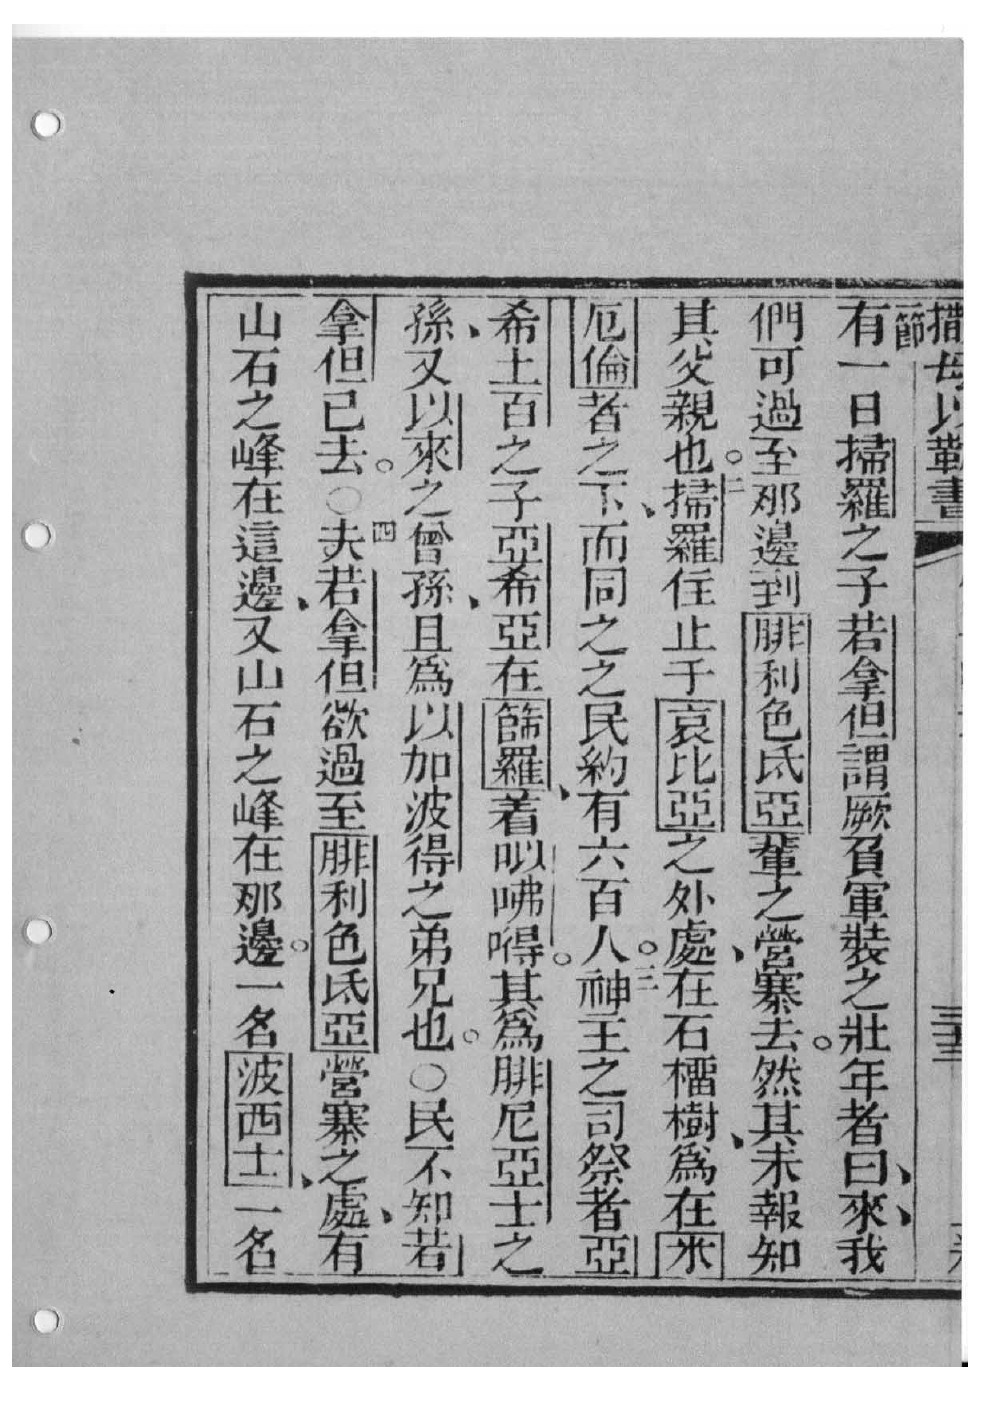 撒母以勒書
一節
有一日掃羅之子若拿但謂厥負軍裝之壯年者曰、來、我
們可過至那邊到腓利色氐亞輩之營寨去。然其未報知
其父親也。二掃羅住止于哀比亞之外處、在石橊樹、為在米
厄倫者之下、而同之之民約有六百人。三神王之司祭者亞
希土百之子亞希亞在篩羅、着㕥咈嘚。其為腓尼亞士之
孫、又以來之曾孫、且為以加波得之弟兄也。○民不知若
拿但已去。○四夫若拿但欲過至腓利色氐亞營寨之處、有
山石之峰在這邊、又山石之峰在那邊。一名波西士、一名